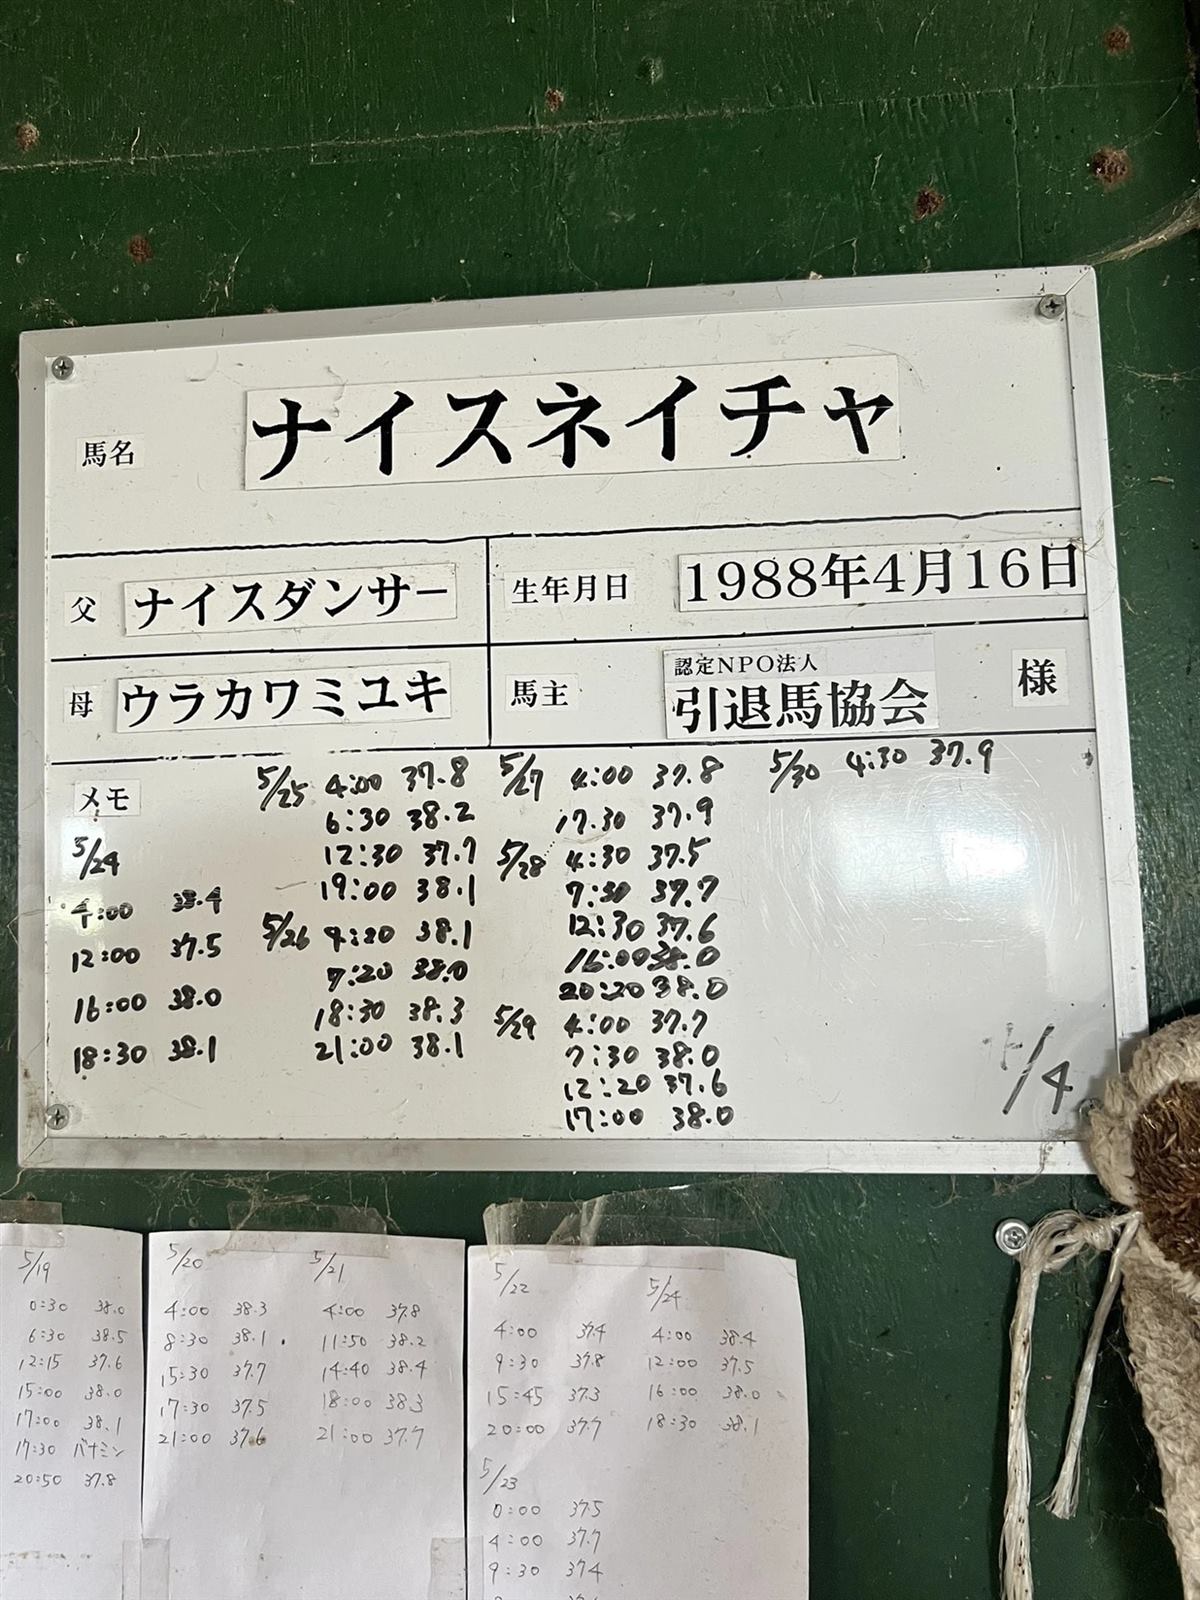 馬名 ナイスネイチャ
父 ナイスダンサー 生年月日 1988年4月16日
認定NPO法人
母 ウラカワミユキ 馬主 引退馬協会 様
メモ
5/24
4:00 38.4
12:00 37.5
16:00 38.0
18:30 38.1
5/25 4:00 37.8
6:30 38.2
12:30 37.7
19:00 38.1
5/26 4:20 38.1
7:20 38.0
18:30 38.3
21:00 38.1
5/27 4:00 37.8
17.30 37.9
5/28 4:30 37.5
7:30 37.7
12:30 37.6
16:00 38.0
20:20 38.0
5/29 4:00 37.7
7:30 38.0
12:20 37.6
17:00 38.0
5/30 4:30 37.9
5/19
0:30 38.0
6:30 38.5
12:15 37.6
15:00 38.0
17:00 38.1
17:30 バナミン
20:50 37.8
5/20
4:00 38.3
8:30 38.1
15:30 37.7
17:30 37.5
21:00 37.6
5/21
4:00 37.8
11:50 38.2
14:40 38.4
18:00 38.3
21:00 37.7
5/22
4:00 37.4
9:30 37.8
15:45 37.3
20:00 37.7
5/23
0:00 37.5
4:00 37.7
9:30 37.4
5/24
4:00 38.4
12:00 37.5
16:00 38.0
18:30 38.1